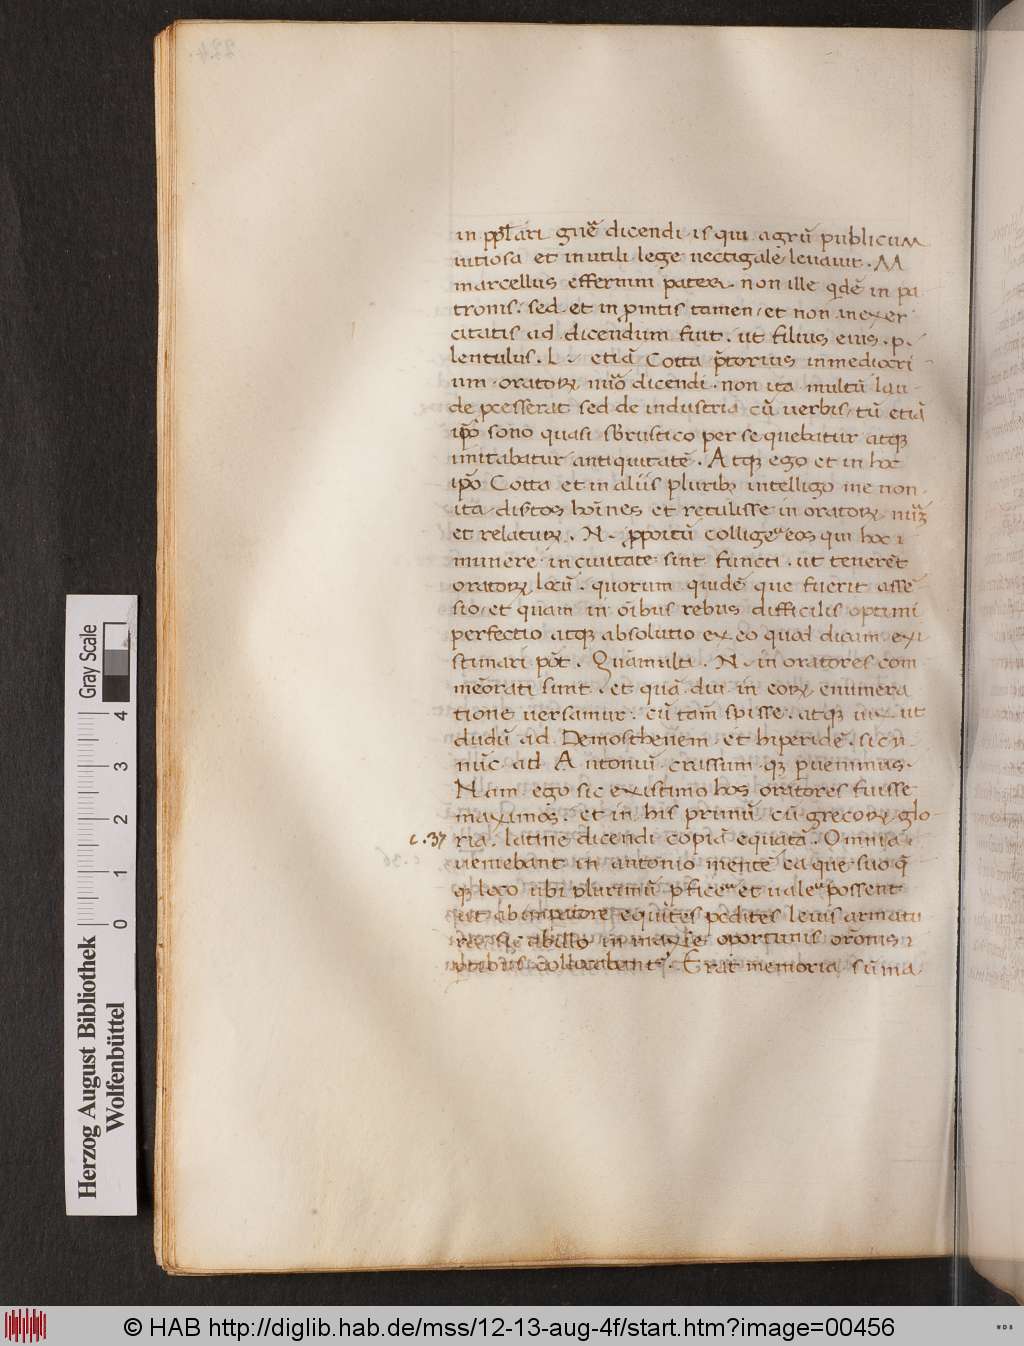 in pp̄lari gn̄e dicendi is qui agrū publicum
uitiosa et inutili lege uectigale leuauit. M
marcellus effernini pater. non ille qdē in pa
tronis. sed et in prontis tamen et non inexer
citatis ad dicendum fuit. ut filius eius. p.
lentulus. L. etiā Cotta p̄torius in mediocri
um oratorꝝ nūo dicendi. non ita multū lau
de pcesserat sed de industria cū uerbis tū etiā
ip̄o sono quasi sb̄rustico persequebatur atqꝫ
imitabatur antiquitatē. Atqꝫ ego et in hoc
ip̄o Cotta et in aliis pluribꝫ intelligo me non
ita disertos hoīnes et retulisse in oratorꝝ nūꝫ
et relaturꝝ. N. pp̄oitū collige eos qui hoc i
munere in ciuitate sint functi. ut tenerēt
oratorꝝ locū. quorum quidē que fuerit assē
sio et quam in oībus rebus difficilis optimi
perfectio atqꝫ absolutio ex eo quod dicam exi
stimari pōt. Quā multi. N. in oratores com
meōrati sunt. et quā diu in eorꝝ enumera
tione uersamur. cū tam̄ spisse. atqꝫ uix ut
dudū ad Demosthenem et hiperidē. sic n
nūc ad Antoniū crassum qꝫ peruenimus.
Nam ego sic existimo hos oratores fuisse
maximos. et in his primū cū grecorꝝ glo
c. 37 ria. latine dicendi copiā equatā. Omnia
ueniebant in antonio mentē ea que suo q̄
qꝫ loco ubi plurimū pficē et ualē possent
ut ab impatore equites pedites leuis armatu
re. sic ab illo in maxīe oportunis orōnis i
ptibus collocabant. Erat memoria sūma
© HAB http://diglib.hab.de/mss/12-13-aug-4f/start.htm?image=00456
Herzog August Bibliothek
Wolfenbüttel
Gray Scale
0 1 2 3 4